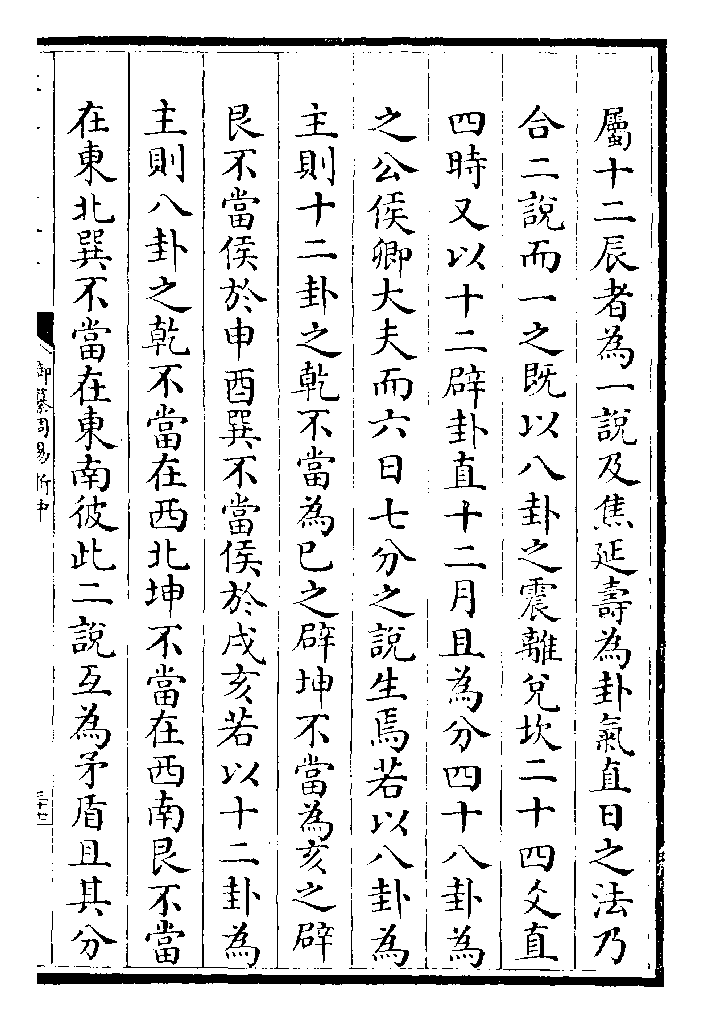 屬十二辰者為一說及焦延壽為卦氣直日之法乃
合二說而一之既以八卦之震離兌坎二十四爻直
四時又以十二辟卦直十二月且為分四十八卦為
之公侯卿大夫而六日七分之說生焉若以八卦為
主則十二卦之乾不當為巳之辟坤不當為亥之辟
艮不當侯於申酉巽不當侯於戌亥若以十二卦為
主則八卦之乾不當在西北坤不當在西南艮不當
在東北巽不當在東南彼此二說互為矛盾且其分
御纂周易折中